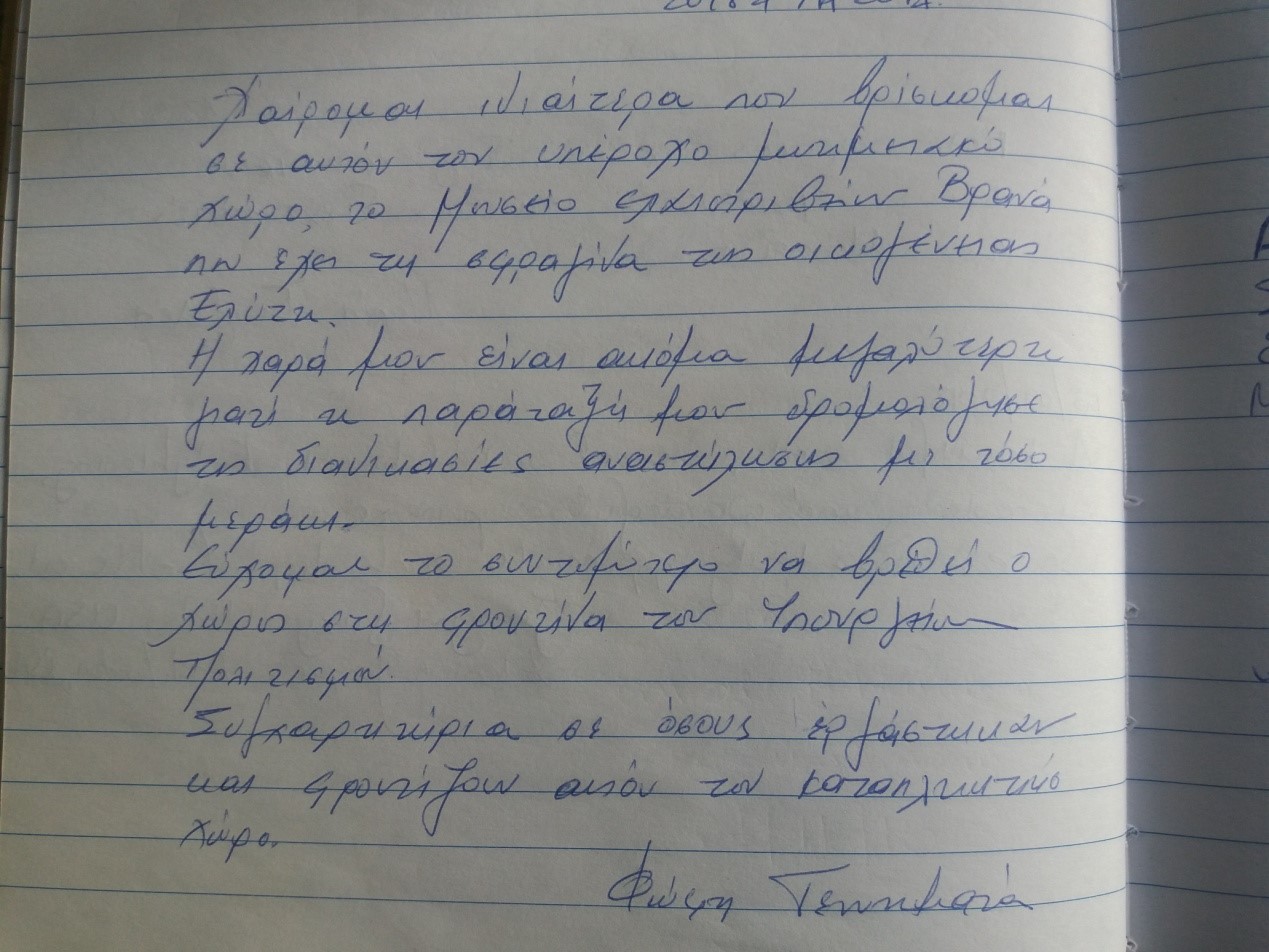 Χαίρομαι ιδιαίτερα που βρίσκομαι
σε αυτόν τον υπέροχο μνημειακό
χώρο, το Μουσείο ελαιοτριβείων Βρανά
που έχει τη σφραγίδα της οικογένειας
Ελύτη.
Η χαρά μου είναι ακόμα μεγαλύτερη
γιατί η παράταξή μου δρομολόγησε
τις διαδικασίες αναστήλωσης με τόσο
μεράκι.
Εύχομαι το συντομότερο να βρεθεί ο
χώρος στη φροντίδα του Υπουργείου
Πολιτισμού.
Συγχαρητήρια σε όσους εργάστηκαν
και φροντίζουν αυτόν τον καταπληκτικό
χώρο.
Φώφη Γεννηματά